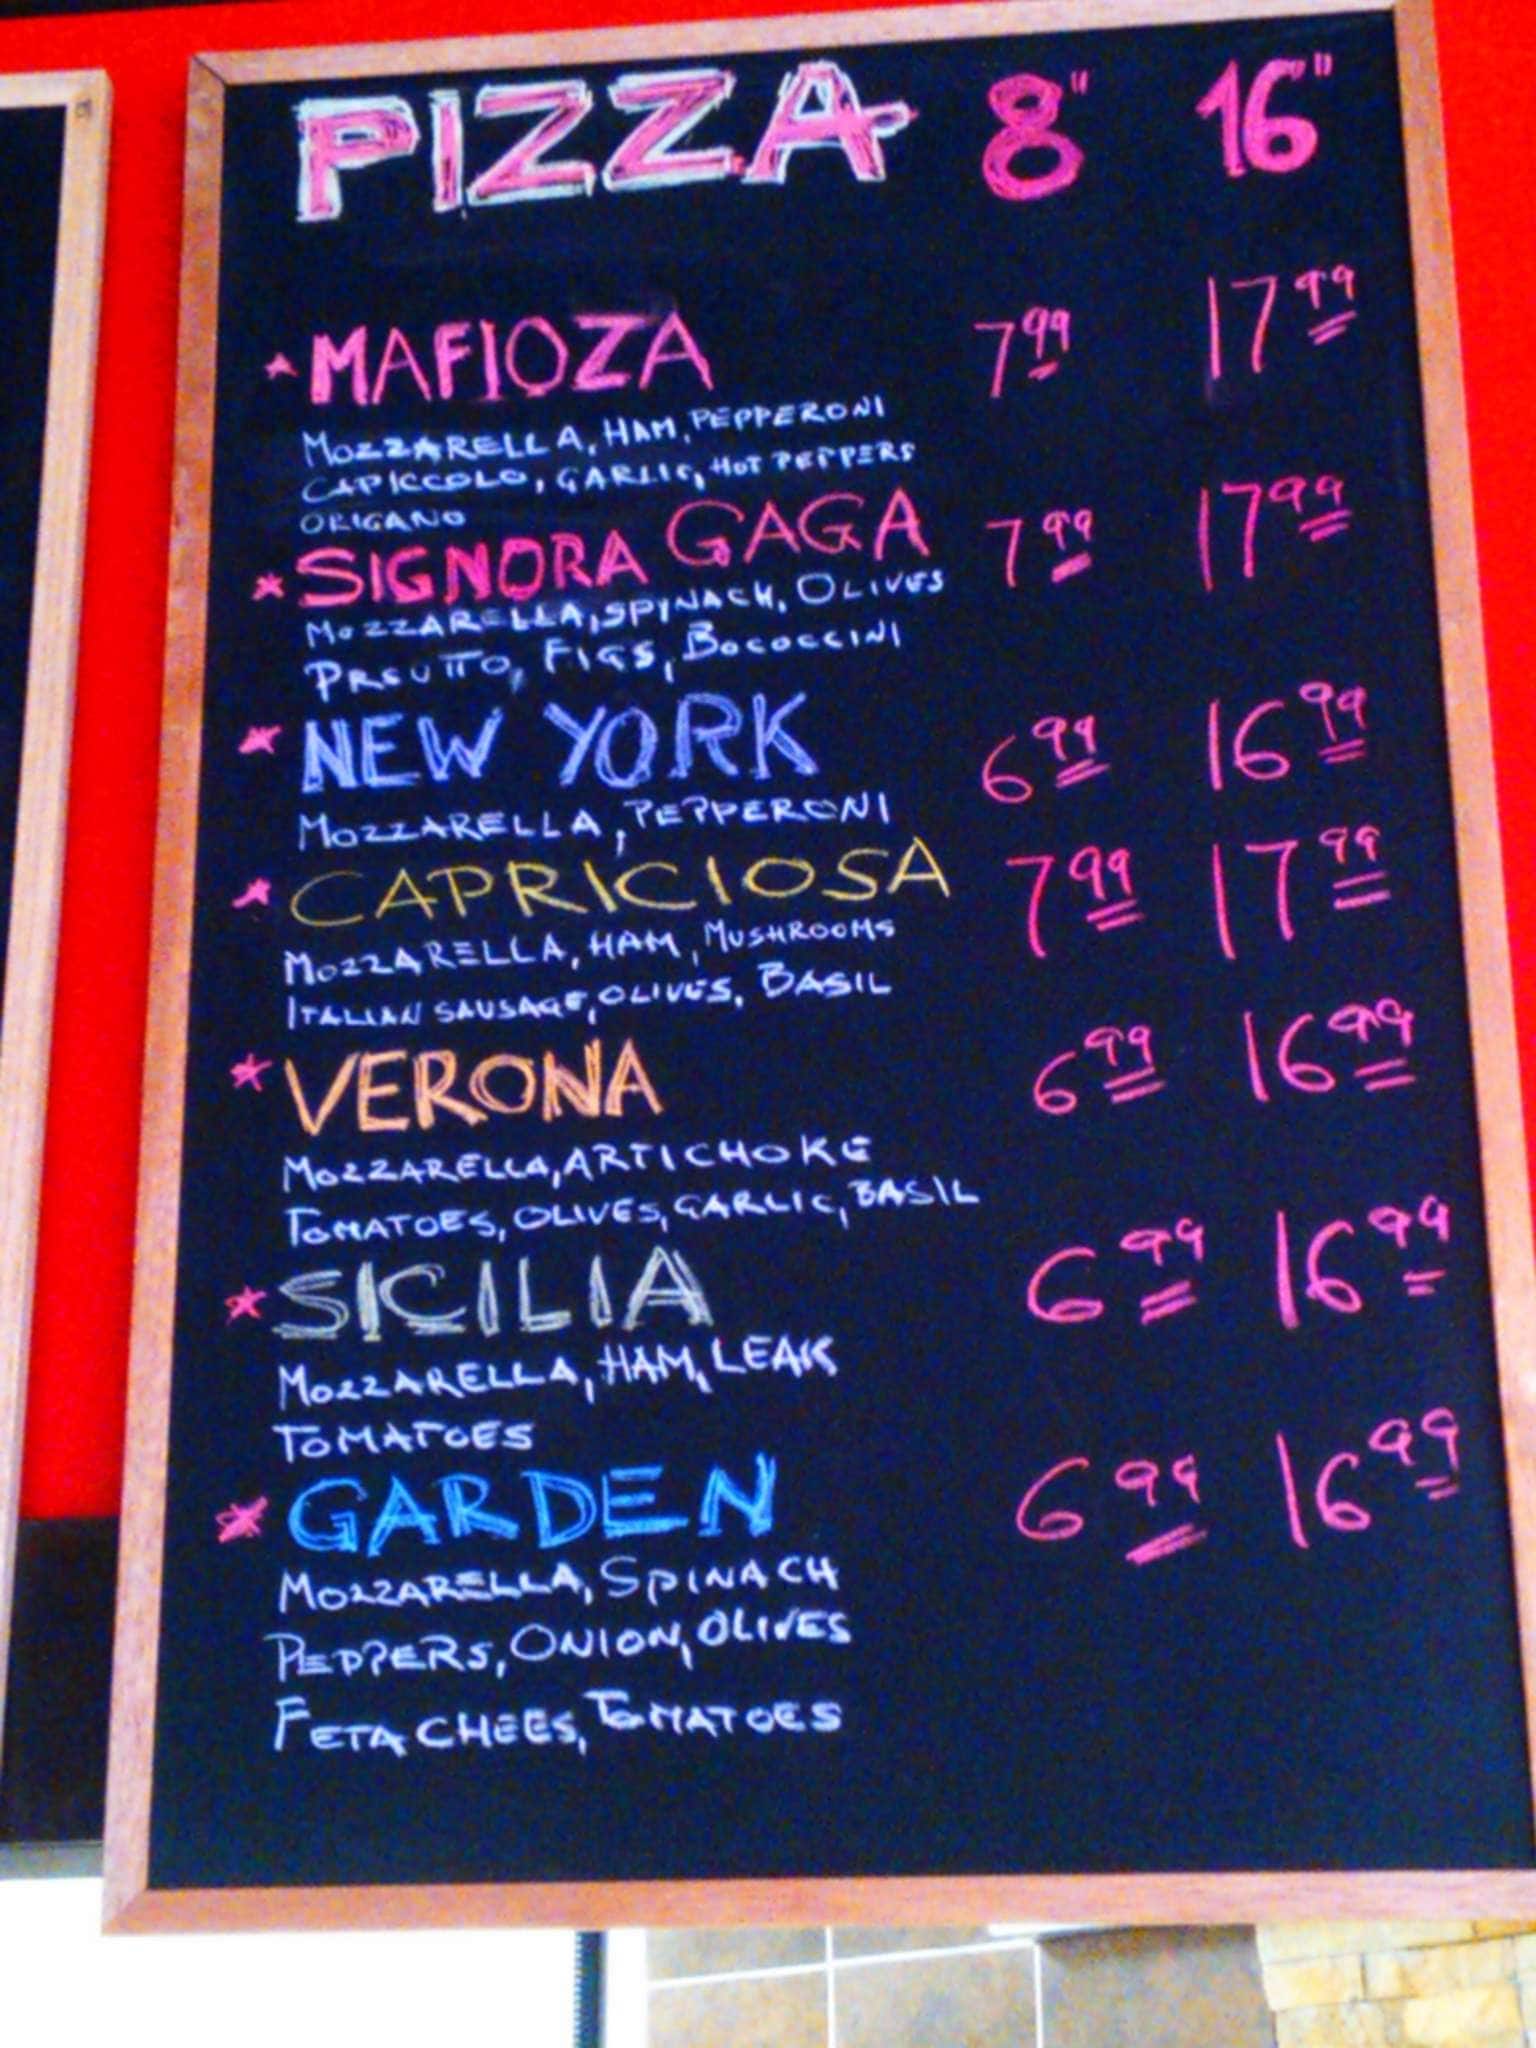 PIZZA 8" 16"
* MAFIOZA 7 99 17 99
MOZZARELLA, HAM, PEPPERONI
CAPICCOLO, GARLIC, HOT PEPPERS
ORIGANO
* SIGNORA GAGA 7 99 17 99
MOZZARELLA, SPINACH, OLIVES
PRSUTTO, FIGS, BOCOCCINI
* NEW YORK 6 99 16 99
MOZZARELLA, PEPPERONI
* CAPRICIOSA 7 99 17 99
MOZZARELLA, HAM, MUSHROOMS
ITALIAN SAUSAGE, OLIVES, BASIL
* VERONA 6 99 16 99
MOZZARELLA, ARTICHOKE
TOMATOES, OLIVES, GARLIC, BASIL
* SICILIA 6 99 16 99
MOZZARELLA, HAM, LEAK
TOMATOES
* GARDEN 6 99 16 99
MOZZARELLA, SPINACH
PEPPERS, ONION, OLIVES
FETA CHEES, TOMATOES